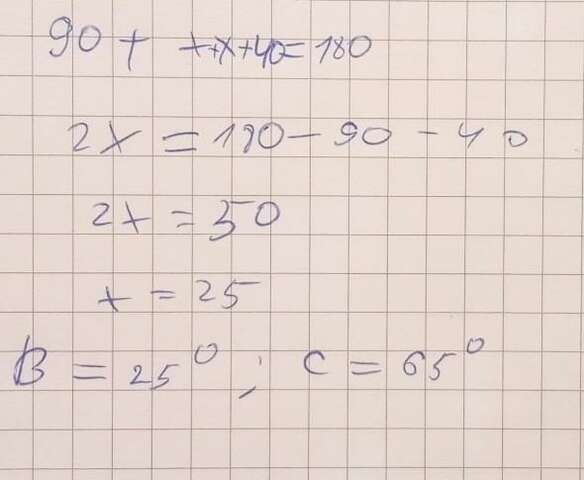 90 + x+x+40=180
2x = 180 - 90 - 40
2x = 50
x = 25
B = 25° ; C = 65°